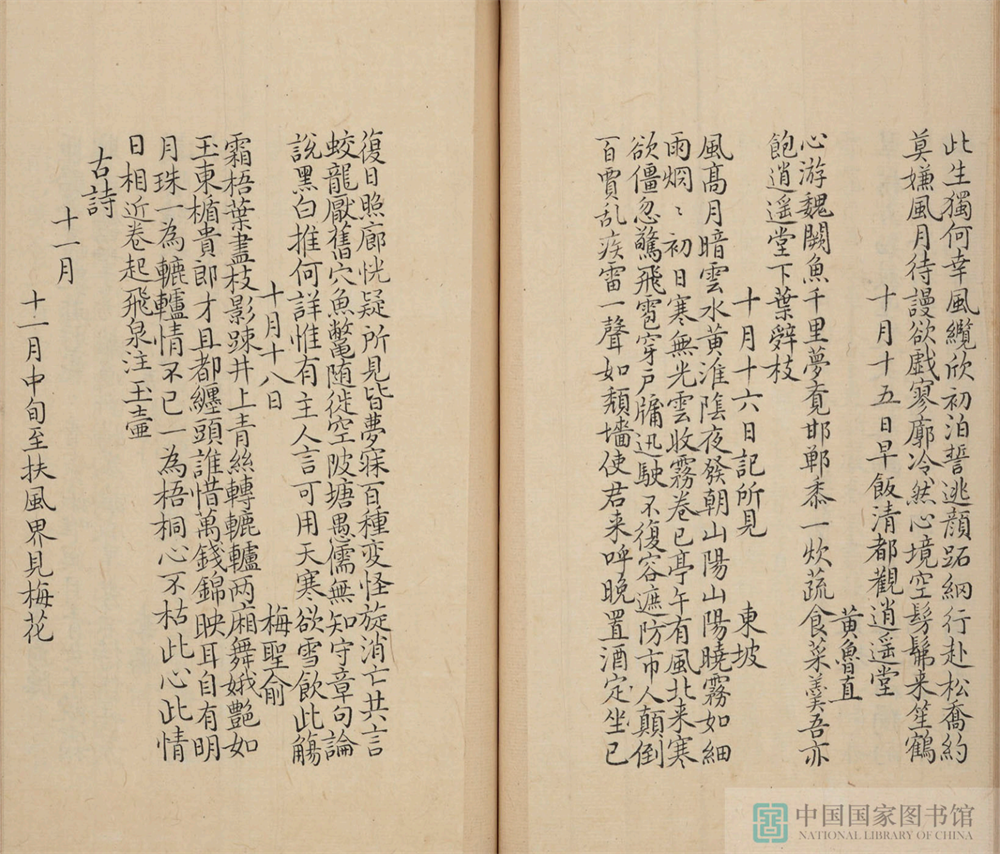 此生獨何幸風纜欣初泊誓逃顏跖網行赴松喬約
莫嫌風月待謾欲戲寥廓冷然心境空髣髴来笙鶴
十月十五日早飯清都觀逍遥堂
黄魯直
心游魏闕魚千里夢覔邯鄲黍一炊蔬食菜羹吾亦
飽逍遥堂下葉辤枝
十月十六日記所見
東坡
風高月暗雲水黄淮陰夜發朝山陽山陽曉霧如細
雨烱〻初日寒無光雲收霧卷已亭午有風北来寒
欲僵忽驚飛雹穿戸牖迅駛不復容遮防市人顛倒
百賈乱疾雷一聲如頽墻使君来呼晚置酒定坐已
復日照廊恍疑所見皆夢寐百種变怪旋消亡共言
蛟龍厭舊穴魚鱉随徙空陂塘愚儒無知守章句論
說黑白推何詳惟有主人言可用天寒欲雪飲此觴
十月十八日
梅聖俞
霜梧葉盡枝影踈井上青絲轉轆轤两廂舞娥艶如
玉東楯貴郎才且都纒頭誰惜萬錢錦映耳自有明
月珠一為轆轤情不已一為梧桐心不枯此心此情
日相近卷起飛泉注玉壷
古詩
十一月
十一月中旬至扶風界見梅花
中国国家图书馆
NATIONAL LIBRARY OF CHINA